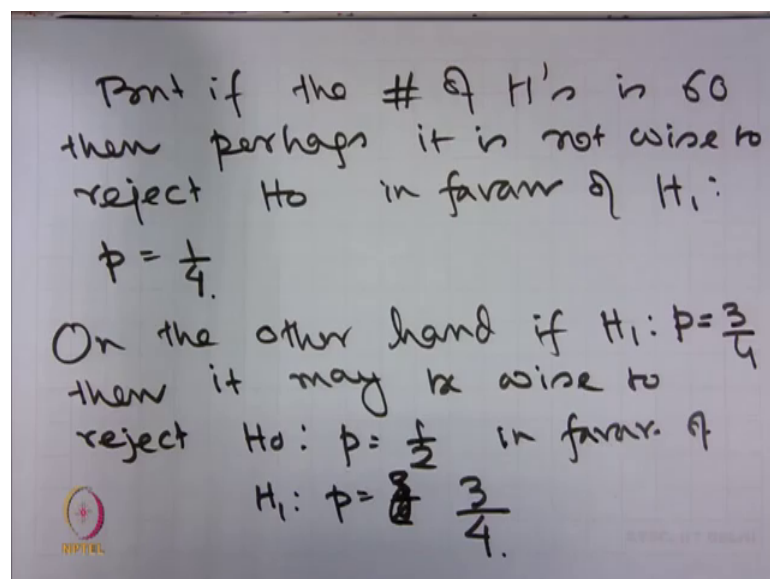 But if the # of H's is 60
then perhaps it is not wise to
reject H0 in favour of H1:
p = 1/4.
On the other hand if H1: p = 3/4
then it may be wise to
reject H0: p = 1/2 in favar. of
H1: p = 3/4.
NPTEL